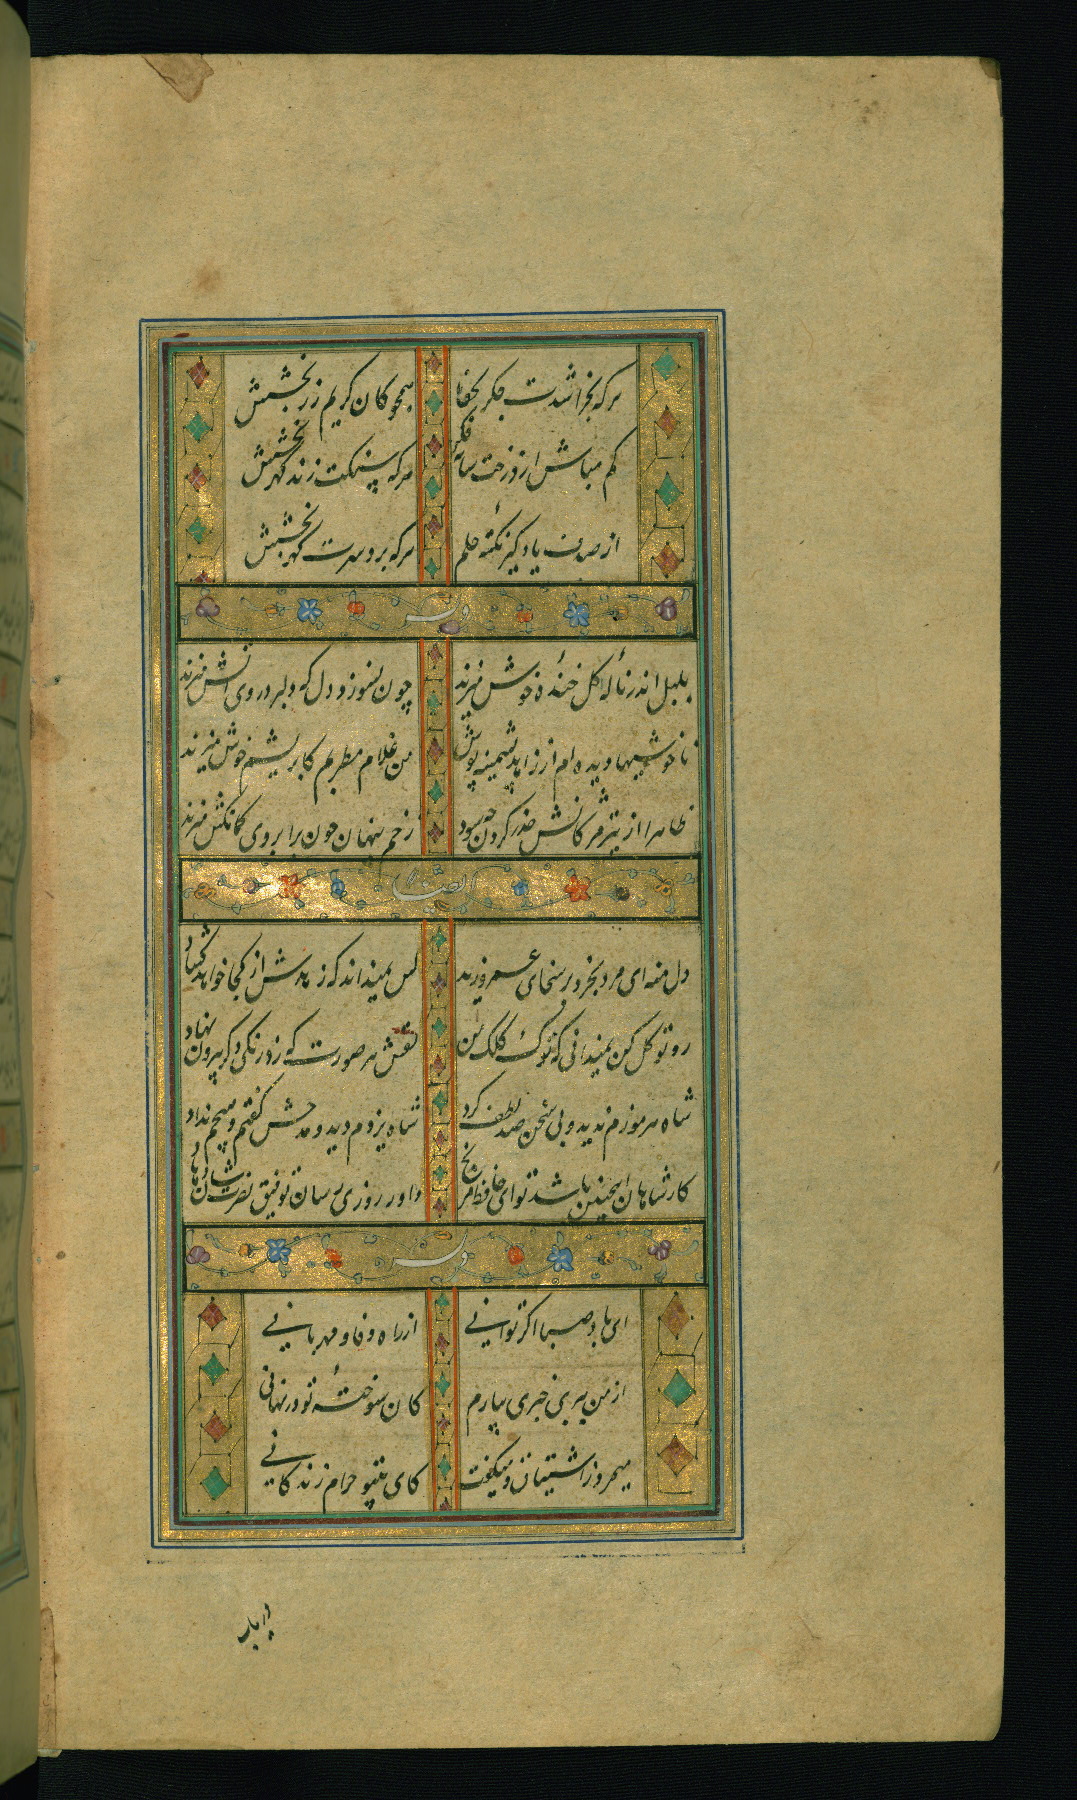 هرکه بخراشدت جگر بجفا
همچو کان کریم زر بخشش
کم مباش از درخت سایه فکن
هرکه سنگت زند ثمر بخشش
از صدف یاد گیر نکتهٔ حلم
هرکه برد سرت گهر بخشش
وله
بلبل اندر نالهٔ گل خندهٔ خوش میزند
چون نسوزد دل که دلبر در وی آتش میزند
ناخوشیها دیده‌ام از زاهد پشمینه پوش
من غلام مطربم کابریشم خوش میزند
ظاهرا از تیر مژگانش حذر کردن چه سود
زخم پنهان چون برابروی کمانکش میزند
ایضا
دل منه ای مرد بخرد بر سخای عمرو زید
کس نمیداند که زمانش از کجا خواهد گشاد
رو توکل کن نمیدانی که نوک کلک من
نقش هر صورت که زد رنگی دگر بیرون نهاد
شاه هرموزم ندید و بی سخن صد لطف کرد
شاه یزدم دید و مدحش گفتم و هیچم نداد
کار شاهان اینچنین باشد تو ای حافظ مرنج
داور روزی رسان توفیق نصرتشان دهاد
وله
ای باد صبا اگر توانی
از راه وفا و مهربانی
از من ببری خبری بیارم
کان سوختهٔ تو در نهانی
میمرد ز اشتیاق و میگفت
کای بتو حرام زندگانی